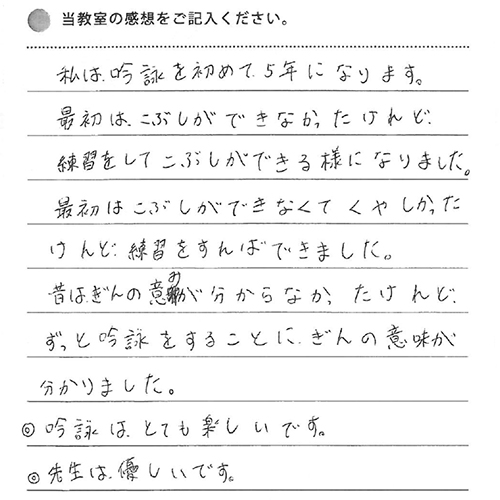 当教室の感想をご記入ください。
私は、吟詠を初めて、5年になります。
最初は、こぶしができなかったけんど、
練習をしてこぶしができる様になりました。
最初はこぶしができなくてくやしかった
けんど、練習をすればできました。
昔は、ぎんの意みが分からなかったけんど、
ずっと吟詠をすることに、ぎんの意味が
分かりました。
◎吟詠は、とても楽しいです。
◎先生は、優しいです。